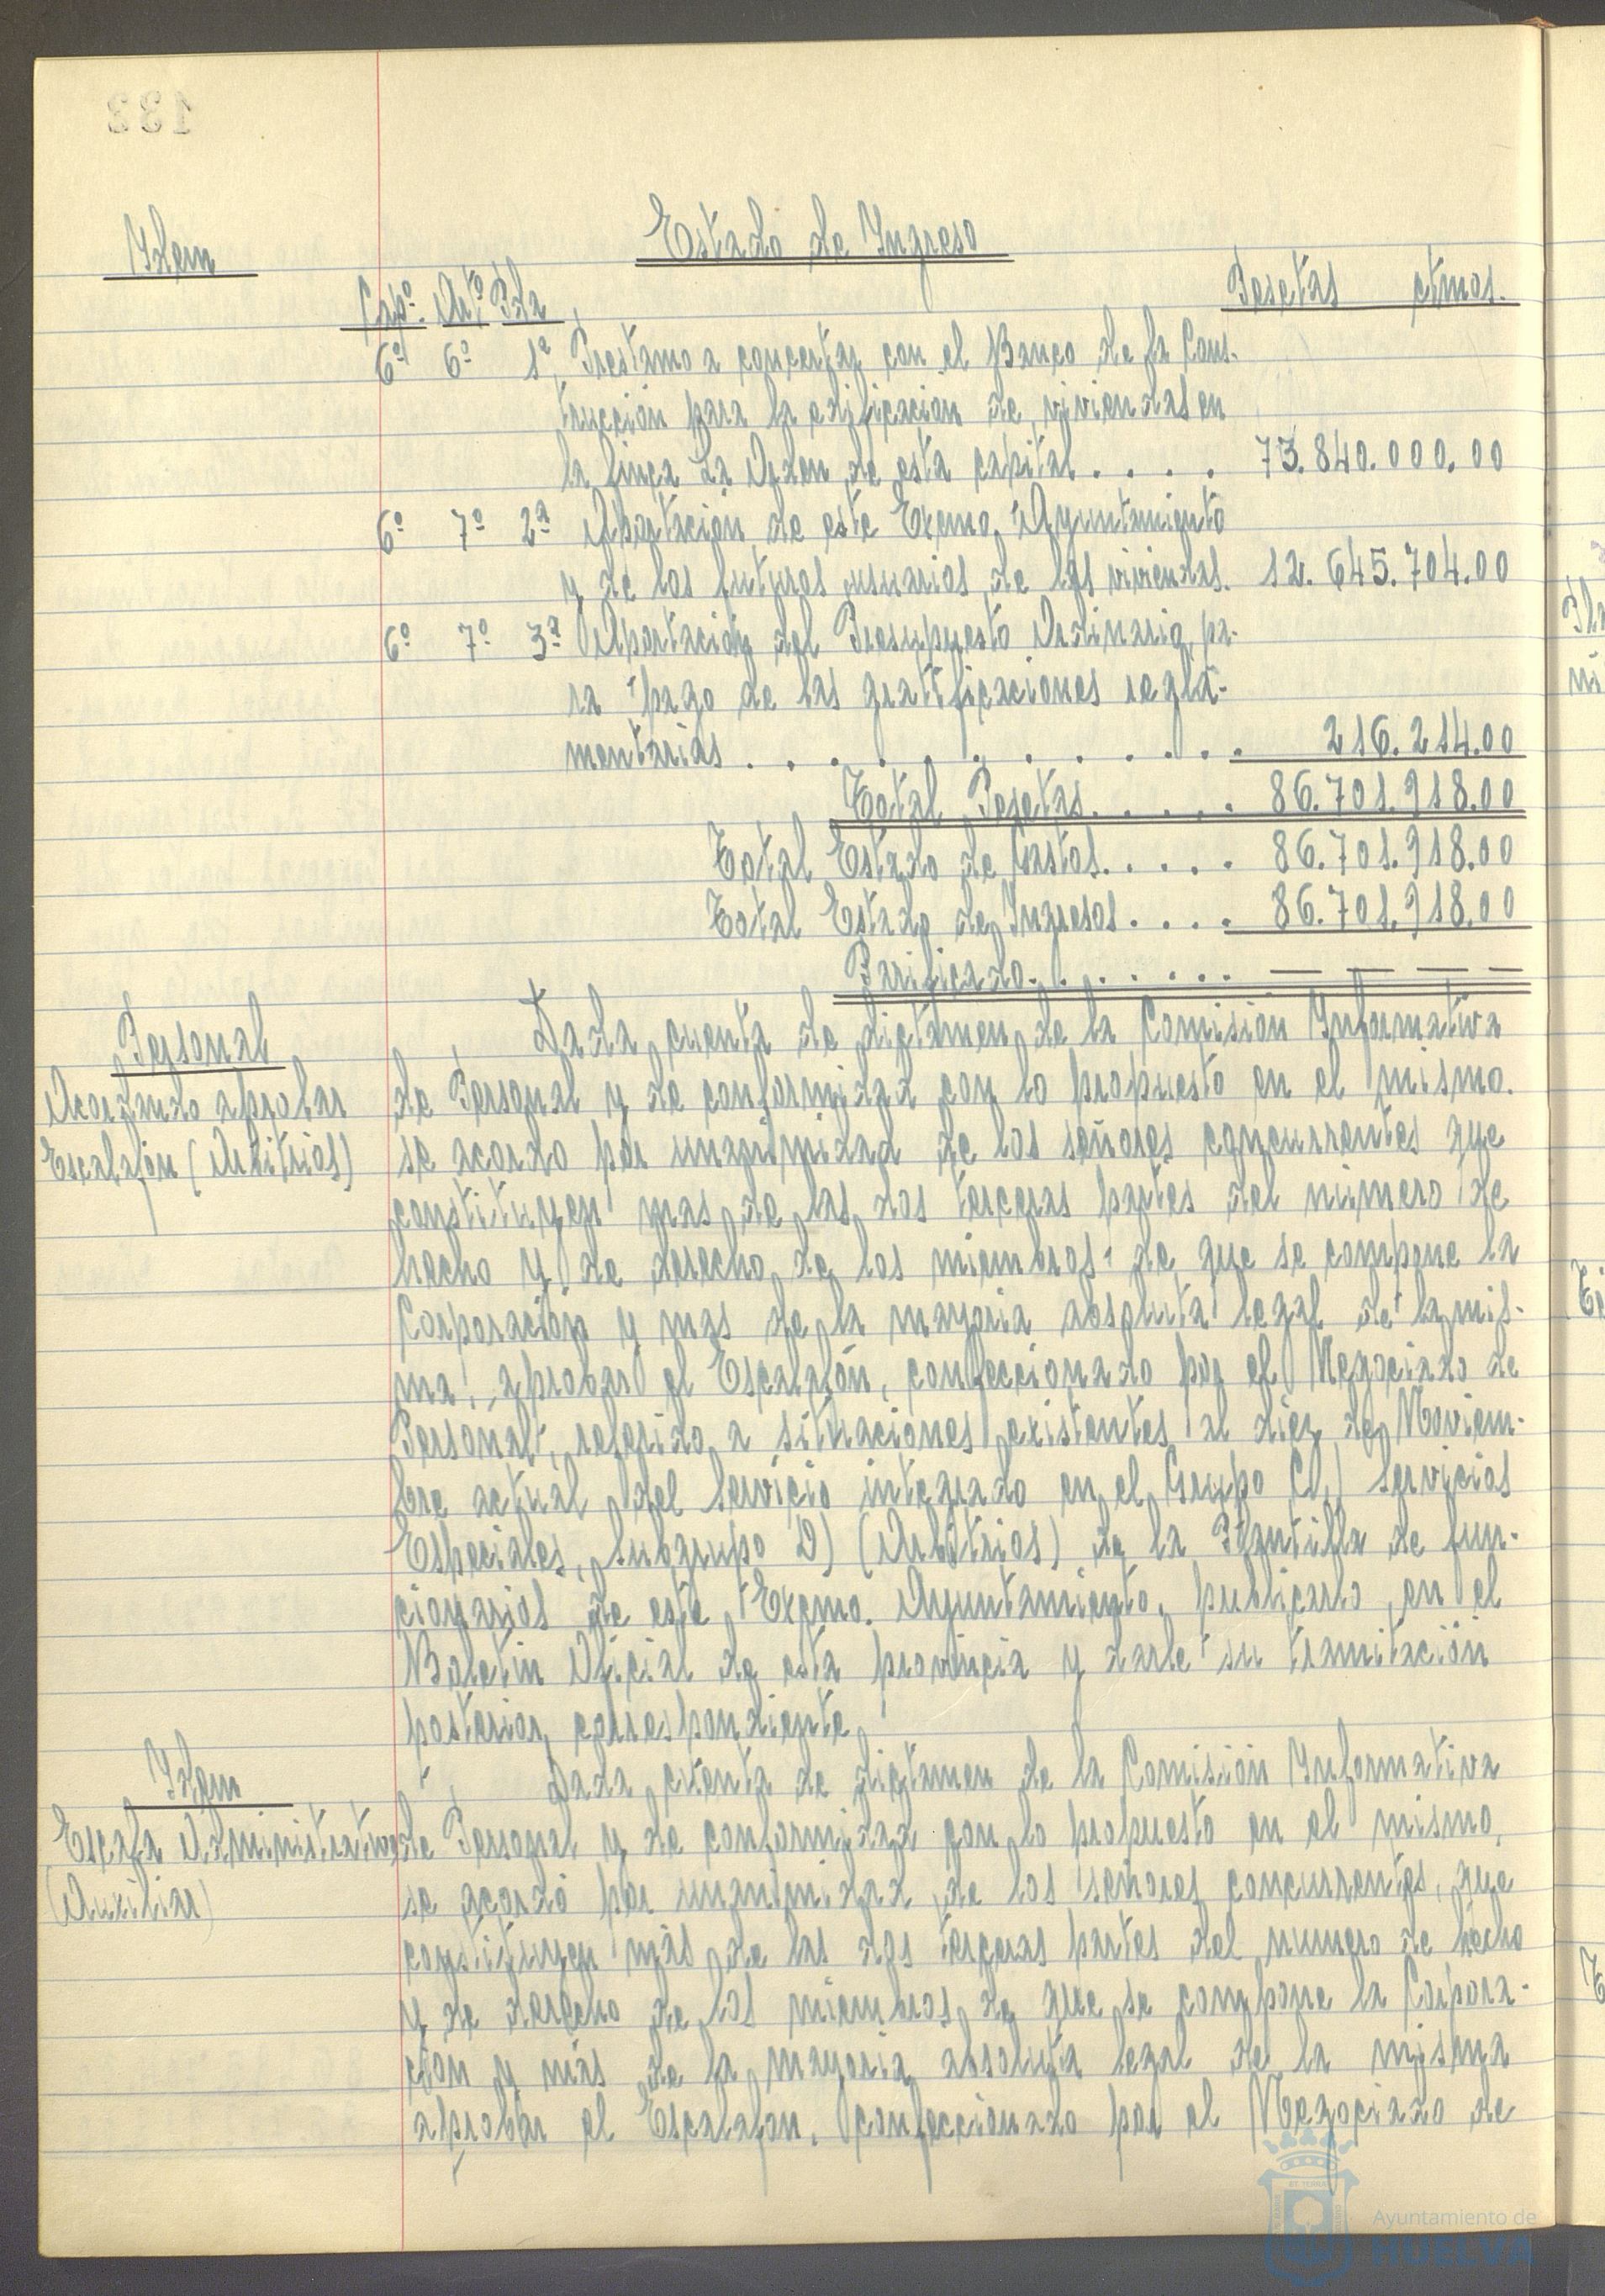 133
Idem
Estado de Ingreso
Capº. Artº. Pda
Pesetas ctmos.
6º 6º 1ª Prestamo a concertar con el Banco de la Cons-
trucción para la edificación de viviendas en
la finca La Orden de esta capital . . . . 73.840.000.00
6º 7º 2ª Aportación de este Excmo. Ayuntamiento
y de los futuros usuarios de las viviendas. 12.645.704.00
6º 7º 3ª Aportación del Presupuesto Ordinario pa-
ra pago de las gratificaciones regla-
mentarias . . . . . . . . . . . . 216.214.00
Total Pesetas . . . . . 86.701.918.00
Total Estado de Gastos . . . . . 86.701.918.00
Total Estado de Ingresos . . . . 86.701.918.00
Parificado . . . . . . . — — — —
Personal
Acordando aprobar
Escalafón (Arbitrios)
Dada cuenta de dictamen de la Comisión Informativa
de Personal y de conformidad con lo propuesto en el mismo.
se acordo por unanimidad de los señores concurrentes que
constituyen mas de las dos terceras partes del número de
hecho y de derecho de los miembros de que se compone la
Corporación y mas de la mayoria absoluta legal de la mis-
ma, aprobar el Escalafón, confeccionado por el Negociado de
Personal, referido a situaciones existentes al diez de Noviem-
bre actual del servicio integrado en el Grupo C), Servicios
Especiales, Subgrupo D) (Arbitrios) de la Plantilla de fun-
cionarios de este Excmo. Ayuntamiento, publicarlo en el
Boletin Oficial de esta provincia y darle su tramitación
posterior correspondiente.
Idem
Escala Administrativa
(Auxiliar)
Dada cuenta de dictamen de la Comisión Informativa
de Personal y de conformidad con lo propuesto en el mismo,
se acordó por unanimidad de los señores concurrentes, que
constituyen más de las dos terceras partes del numero de hecho
y de derecho de los miembros de que se compone la Corpora-
ción y más de la mayoria absoluta legal de la misma
aprobar el Escalafon, confeccionado por el Negociado de
Ayuntamiento de
HUELVA